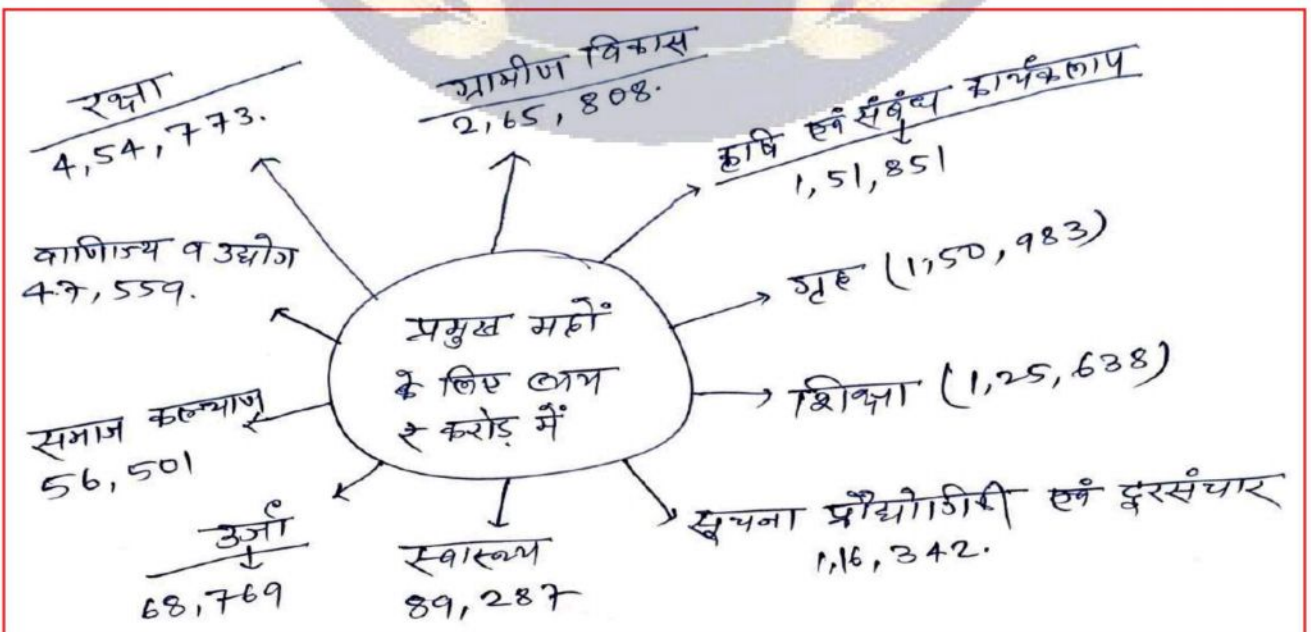 रक्षा
4,54,773.
ग्रामीण विकास
2,65,808.
कृषि एवं संबंध कार्यकलाप
1,51,851
वाणिज्य व उद्योग
47,559.
गृह (1,50,983)
प्रमुख मदों
के लिए व्यय
₹ करोड़ में
शिक्षा (1,25,638)
समाज कल्याण
56,501
सूचना प्रौद्योगिकी एवं दूरसंचार
1,16,342.
उर्जा
68,769
स्वास्थ्य
89,287